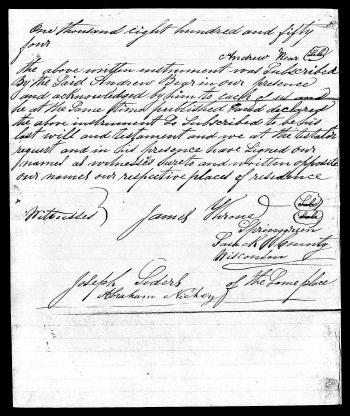 One thousand eight hundred and fifty
four
Andrew Bear
the above written instrument was Subscribed
By the Said Andrew Bear in our presence
and acknowledged by him to each of us and
he at the Same time published and declared
the above instrument So Subscribed to be his
last will and testament and we at the testator
request and in his presence have Signed our
names as witnesses hereto and written opposite
our names our respective places of residence
Witnesses James Throne
Springgreen
Sauk County
Wisconsin
Joseph of the Same place
Abraham